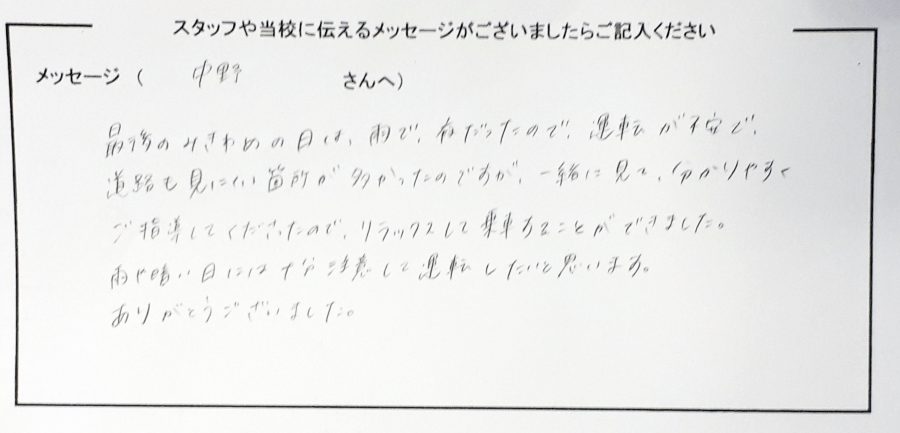 スタッフや当校に伝えるメッセージがございましたらご記入ください
メッセージ ( 中野 さんへ)
最後のみきわめの日は、雨で、夜だったので、運転が不安で、
道路も見にくい箇所が多かったのですが、一緒に見て、分かりやすく
ご指導してくださったので、リラックスして乗車することができました。
雨や暗い日には十分注意して運転したいと思います。
ありがとうございました。